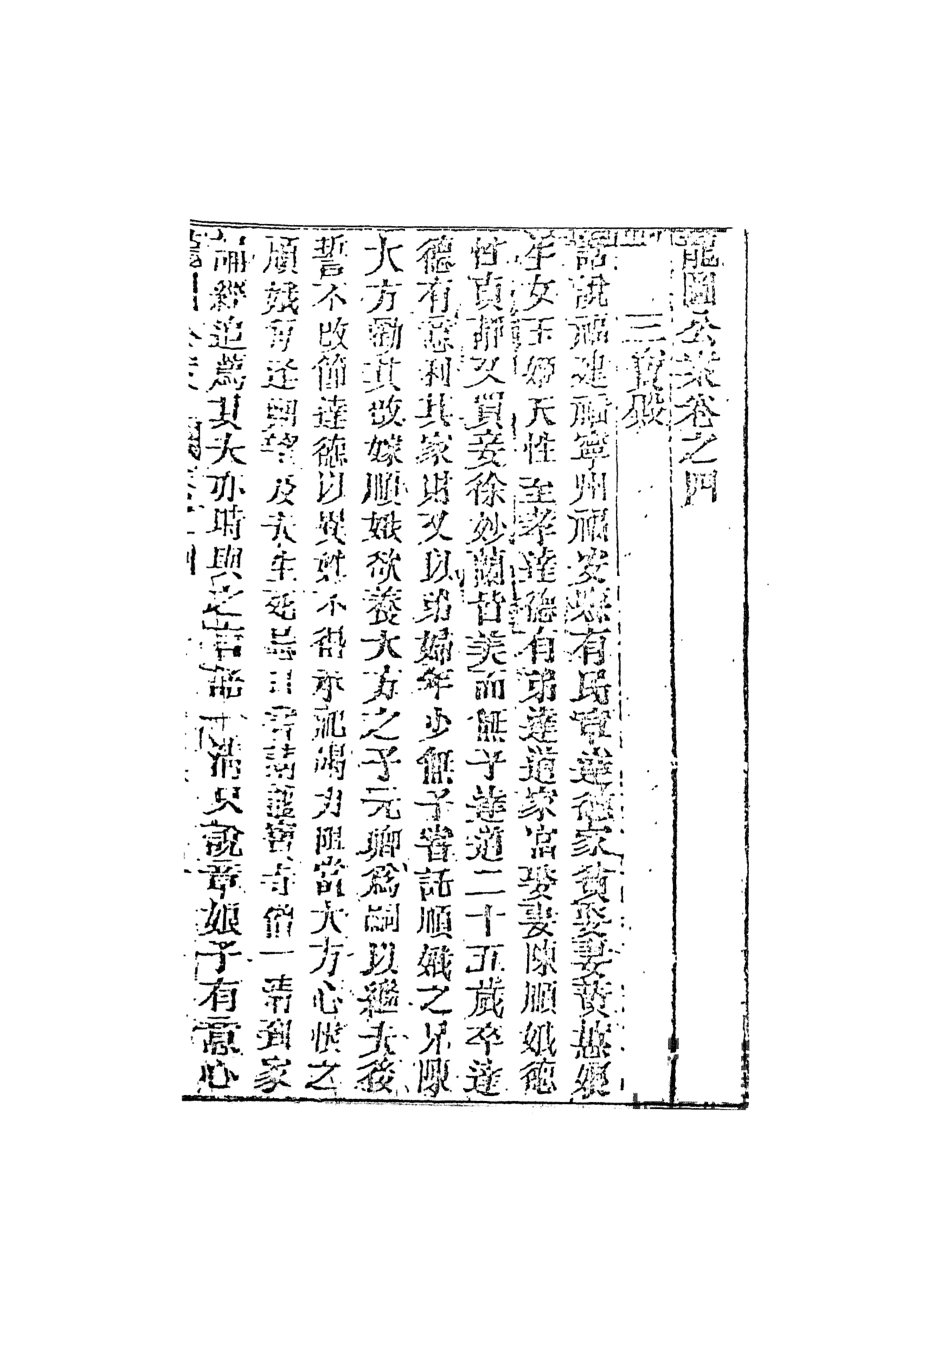 龍圖公案卷之四
三寶殿
話說福建福寧州福安縣有民章達德家貧娶妻黃蕙娘
生女玉姬天性至孝達德有弟達道家富娶妻陳順娥德
性貞靜又買妾徐妙蘭皆美而無子達道二十五歲卒達
德有意利其家財又以弟婦年少無子嘗託順娥之兄陳
大方勸其改嫁順娥欲養大方之子元卿為嗣以繼夫後
誓不改節達德以異姓不得承祀竭力阻當大方心恨之
順娥每逢朔望及夫生死忌日常請龍寶寺僧一清到家
誦經追薦其夫亦時與之言語一清只說章娘子有意心